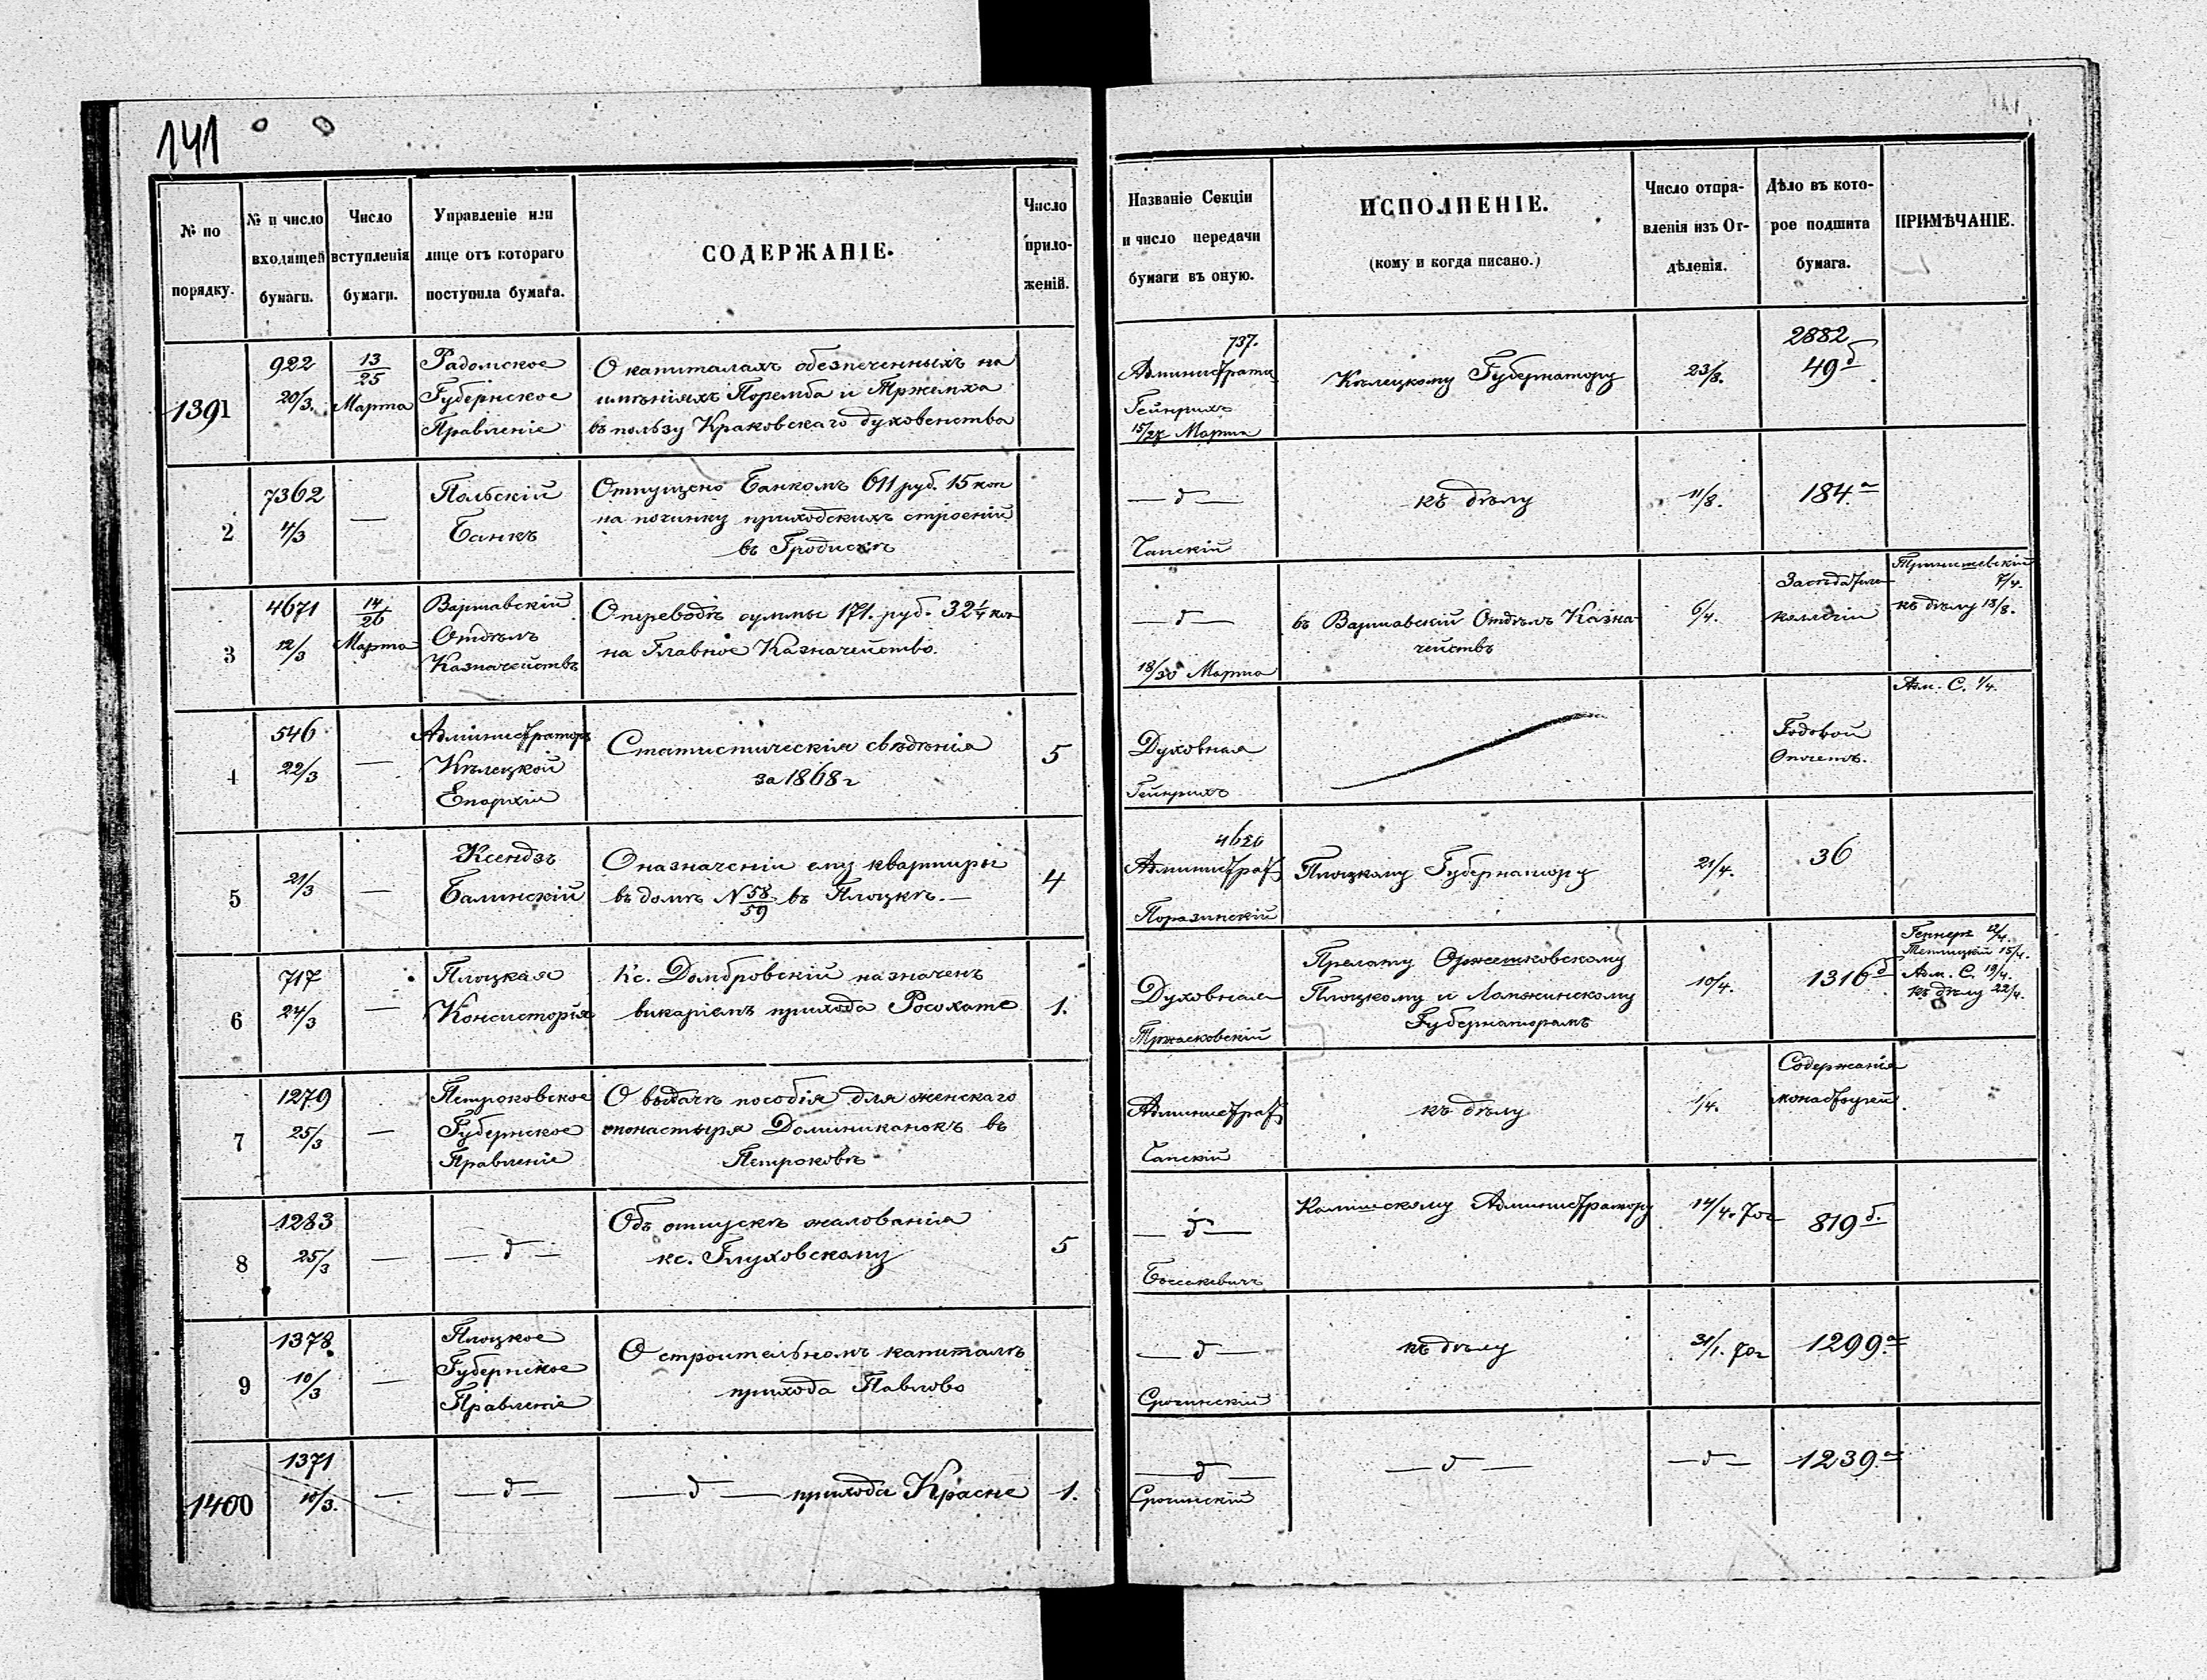 141
№ по порядку.
№ и число входящей бумаги.
Число вступленія бумаги.
Управленіе или лице отъ котораго поступила бумага.
СОДЕРЖАНІЕ.
Число приложеній.
Названіе Секціи и число передачи бумаги въ оную.
ИСПОЛНЕНІЕ.
(кому и когда писано.)
Число отправленія изъ Отдѣленія.
Дѣло въ которое подшита бумага.
ПРИМѢЧАНІЕ.
1391
922
20/3.
13/25
Марта
Радомское
Губернское
Правленіе
О капиталахъ обезпеченныхъ на
имѣніяхъ Поремба и Тржемха
въ пользу Краковскаго духовенства
737.
Администрати
Гейнрихъ
15/27 Марта
Кѣлецкому Губернатору
23/8.
2882
49б
2
7362
4/3
—
Польскій
Банкъ
Отпущено Банкомъ 611 руб. 15 коп
на починку приходскихъ строеній
въ Гродискѣ
— д —
Чапскій
къ дѣлу
11/8.
184.а
3
4671
12/3
14/26
Марта
Варшавскій
Отдѣлъ
Казначействъ
О переводѣ суммы 171. руб. 32¼ коп
на Главное Казначейство.
— д —
18/30 Марта
въ Варшавскій Отдѣлъ Казна-
чействъ
6/4.
Засѣдатели
коллегіи
7/4.
къ дѣлу 18/8.
4
546
22/3
—
Администраторъ
Кѣлецкой
Епархіи
Статистическія свѣдѣнія
за 1868 г
5
Духовная
Гейнрихъ
Годовой
Отчетъ.
Адм. С. 1/4.
5
21/3
—
Ксендзъ
Балинскій
О назначеніи ему квартиры
въ домѣ N 58/59 въ Плоцкѣ. —
4
4626
Администрат
Поразинскій
Плоцкому Губернатору
21/4.
36
6
717
24/3
—
Плоцкая
Консисторія
Кс. Домбровскій назначенъ
викаріемъ прихода Росохате
1.
Духовная
Тржасковскій
Прелату Оржешковскому
Плоцкому и Ломжинскому
Губернаторамъ
10/4.
1316б
12/4.
15/4.
Адм. С. 19/4.
къ дѣлу 22/4.
7
1279
25/3
—
Петроковское
Губернское
Правленіе
О выдачѣ пособія для женскаго
монастыря Доминиканокъ въ
Петроковѣ
Администрат
Чапскій
къ дѣлу
1/4.
Содержанія
монастырей
8
1283
25/3
—
— д —
Объ отпускѣ жалованія
кс. Глуховскому
5
— д —
Калишскому Администратору
14/4. 70г
819б.
9
1378
10/3
—
Плоцкое
Губернское
Правленіе
О строительномъ капиталѣ
прихода Павлово
— д —
Срочинскій
къ дѣлу
31/1. 70г
1299.а
1400
1371
10/3.
—
— д —
— д — прихода Красне
1.
— д —
Срочинскій
— д —
— д —
1239.а